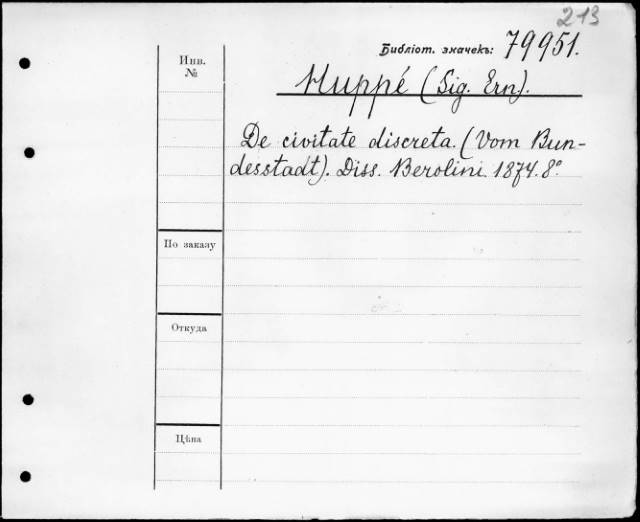 213
Библіот. значекъ: 79951.
Инв.
№
Huppé (Sig. Ern).
De civitate discreta. (Vom Bun-
desstadt). Diss. Berolini. 1874. 8°
По заказу
Откуда
Цѣна